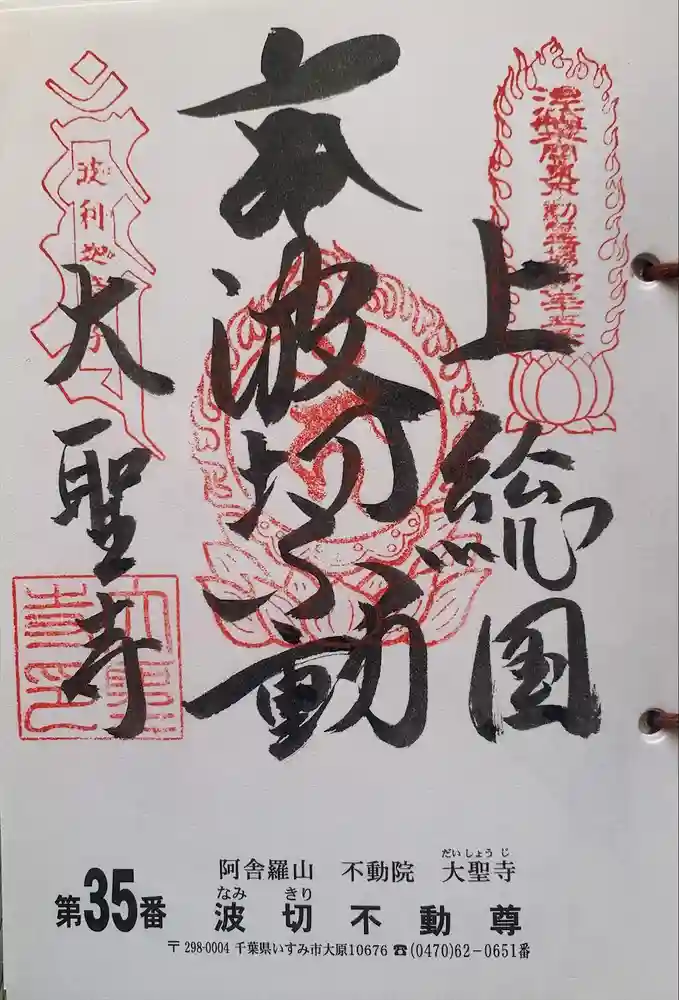 上総国
波切不動
大聖寺
大聖寺印
だいしょうじ
阿舎羅山 不動院 大聖寺
なみ きり
第35番 波切不動尊
〒298-0004 千葉県いすみ市大原10676 ☎(0470)62-0651番